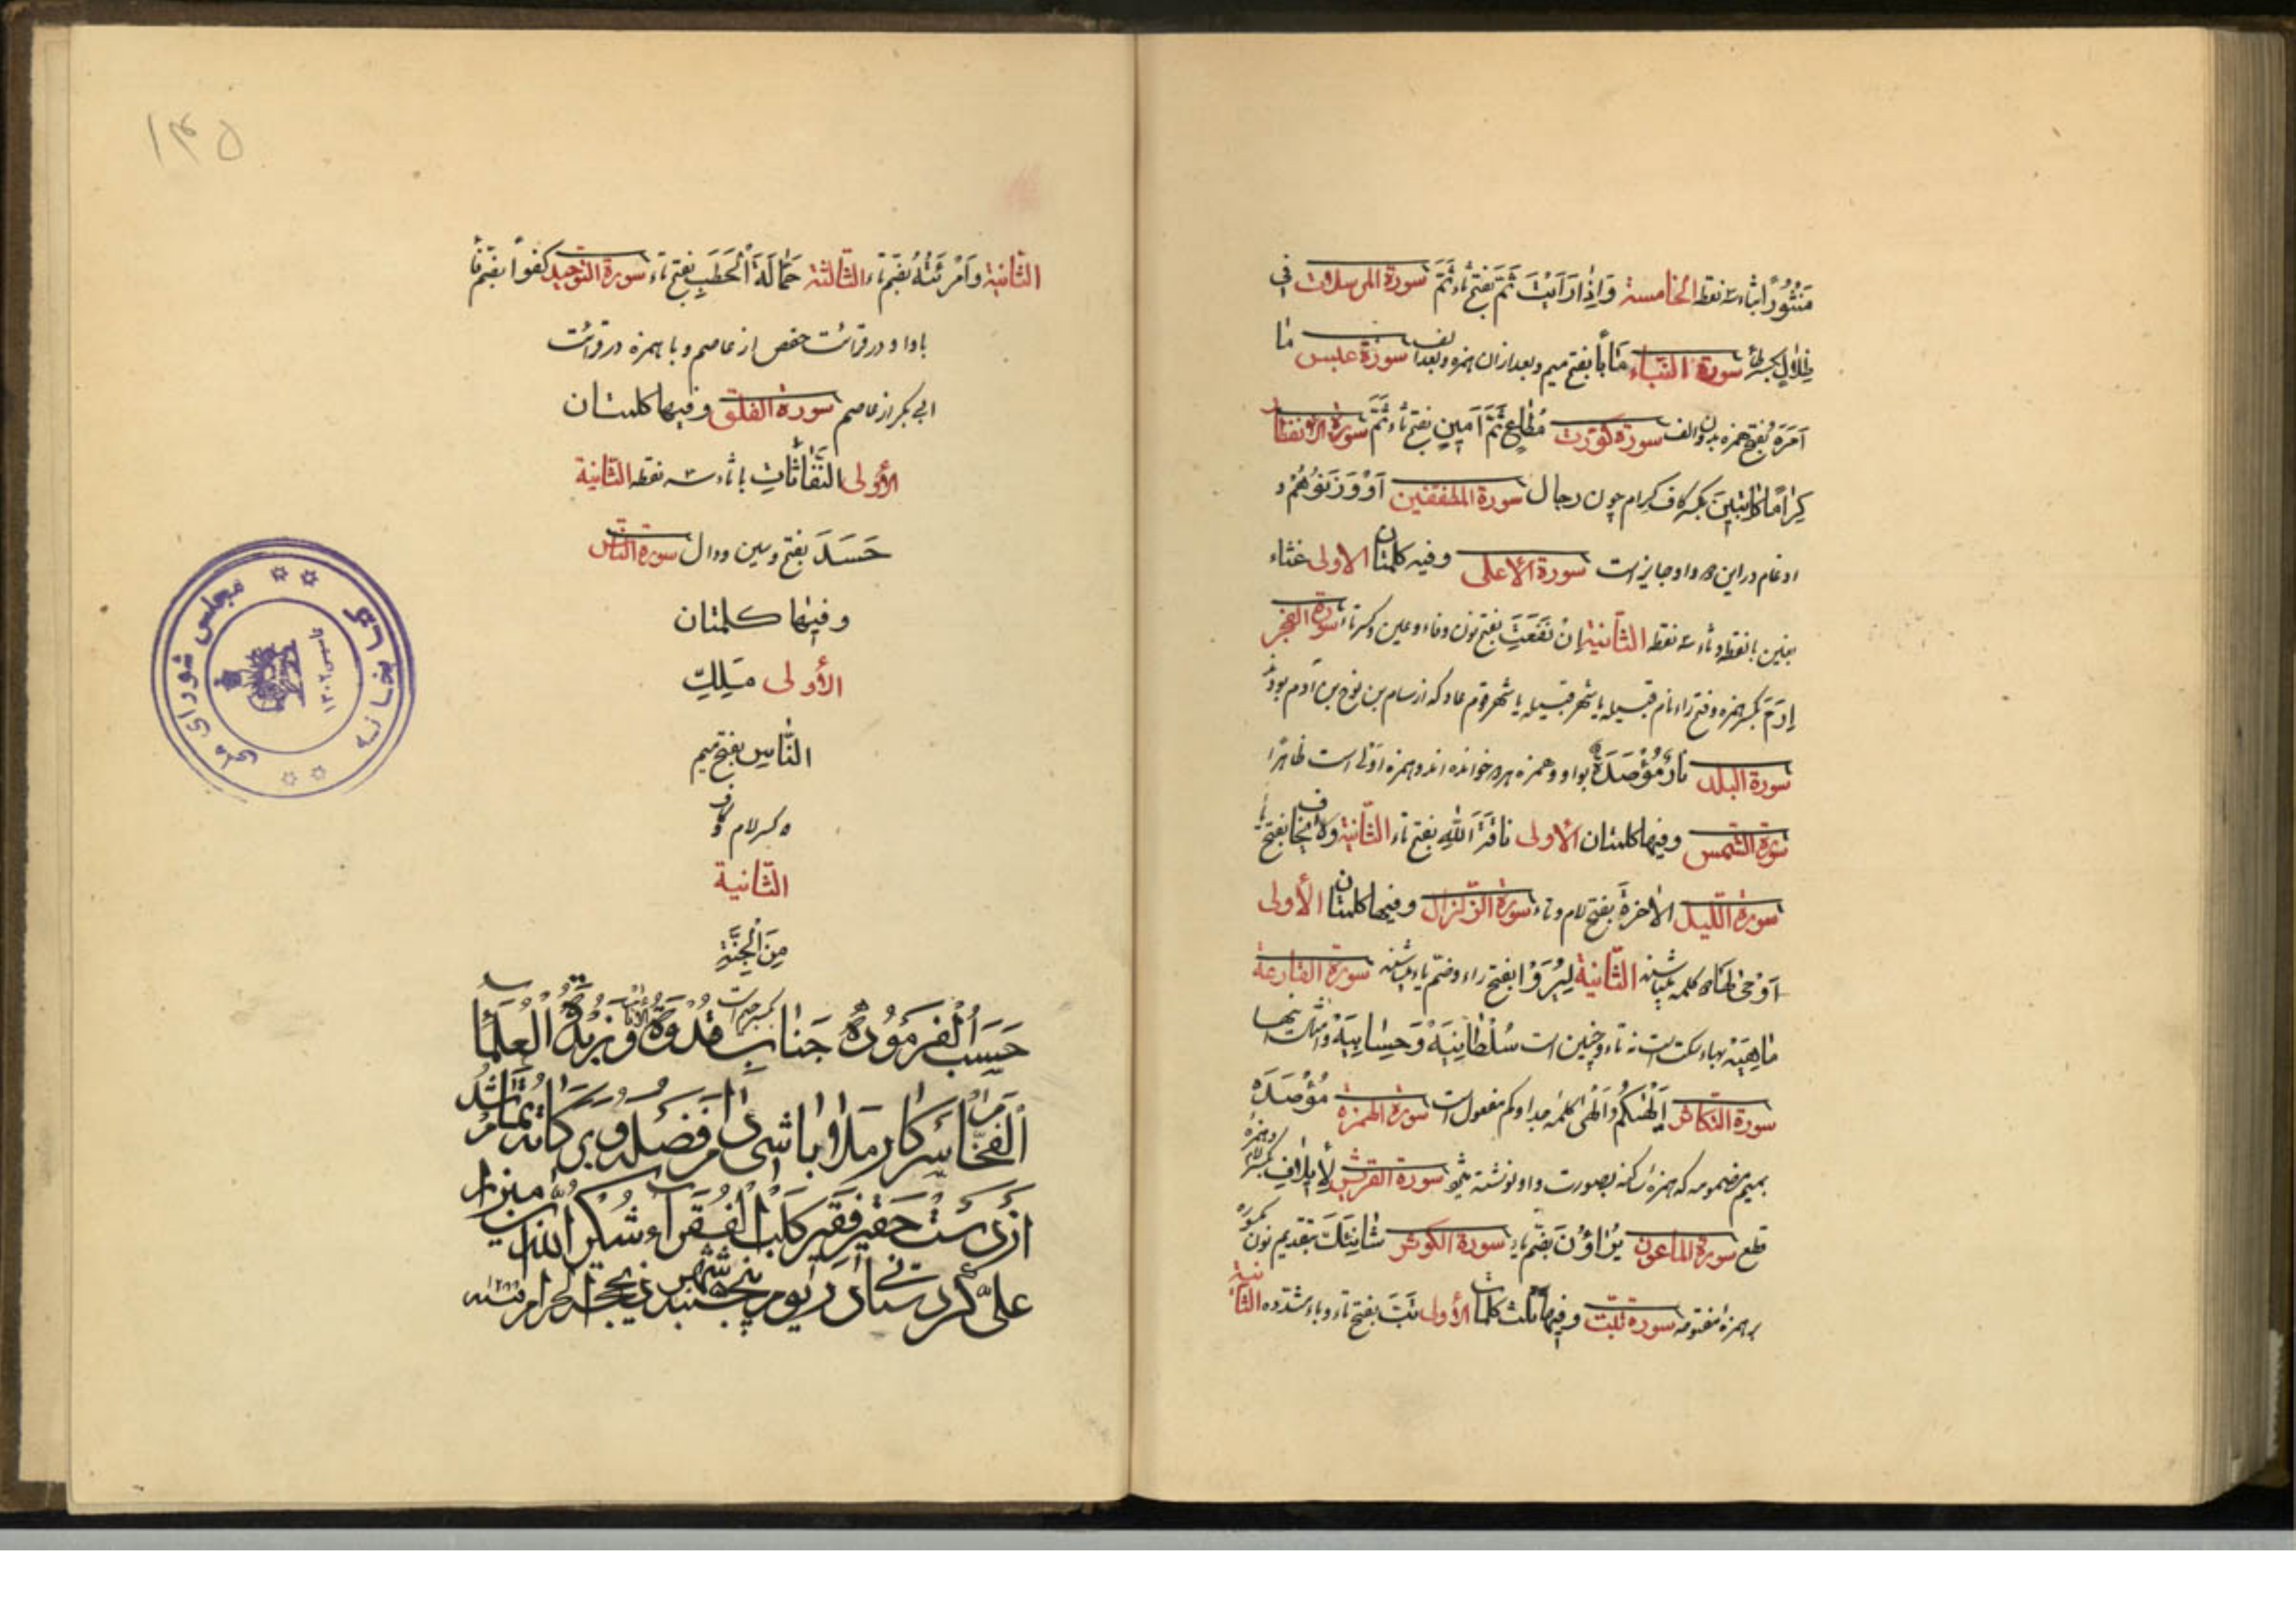 مَنثُورًا بثاء سه نقطه الخامسة وَإِذَا رَأَيْتَ ثَمَّ بفتح ثاء ثَمَّ سورة المرسلات في
ظِلَالٍ بكسر ظا سورة النباء مَآبًا بفتح میم و بعد از ان همزه و بعد الف سورة عبس ما
أَمَرَهُ بفتح همزه بدون الف سورة كورت مُطَاعٍ ثَمَّ أَمِينٍ بفتح ثاء ثَمَّ سورة الانفطار
كِرَامًا كَاتِبِينَ بکسر کاف کرام چون رجال سورة المطففين أَوْ وَزَنُوهُمْ و
ادغام در این دو واو جایز است سورة الأعلى وفيه كلمتان الاولى غثاء
بغین با نقطه و ثاء سه نقطه الثانية إِنْ نَفَعَتْ بفتح نون و فاء و عین و کسر تاء سورة الفجر
إِرَمَ بکسر همزه و فتح راء نام قبیله یا شهر قبیله یا شهر قوم عاد که از سام بن نوح بن آدم بودند
سورة البلد نَارٌ مُؤْصَدَةٌ بواو و همزه هر دو خوانده اند و همزه اولی است ظاهرا
سورة الشمس وفيها كلمتان الأولى نَاقَةَ اللَّهِ بفتح تاء الثانية وَلَا يَخَافُ بفتح یا
سورة الليل الآخرة بفتح لام و تاء سورة الزلزال وفيها كلمتان الأولى
أَوْحَى لَهَا کلمه بمباشند الثانية لِيُرَوْا بفتح راء و ضم یاء سورة القارعة
مَاهِيَهْ بهاء سکت است نه تاء و چنین است سُلْطَانِيَهْ وَحِسَابِيَهْ و امثال اینها
سورة التكاثر أَلْهَاكُمُ و أَلْهَى کلمه جدا و کم مفعول است سورة الهمزة مُؤْصَدَه
بمیم مضمومه که همزه ساکنه بصورت واو نوشته سورة القريش لِإِيلَافِ بکسر لام و همزه
قطع سورة الماعون يُرَاؤُنَ بضم یاء سورة الكوثر شَانِئَكَ بتقدیم نون مکسوره
بر همزه مفتوحه سورة تبت وفيها ثلث كلمات الأولى تَبَّتْ بفتح تاء و باء مشدده الثانية
۱۴۵
الثانية وَامْرَئَتُهُ بضم تاء الثالثة حَمَّالَةَ الْحَطَبِ بفتح تاء سورة التوحيد كُفُوًا بضم فا
با واو در قرائت حفص از عاصم و با همزه در قرائت
ابی بکر از عاصم سورة الفلق وفيها كلمتان
الأولى النَّفَّاثَاتِ با ثاء سه نقطه الثانية
حَسَدَ بفتح و سین و دال سورة الناس
وفيها كلمتان
الأولى مَلِكِ
النَّاسِ بفتح میم
و کسر لام و کاف
الثانية
مِنَ الْجِنَّةِ
بکسر جیم است
حَسَبُ الْفَرمَوُدهٔ جَناب قُدْوَةُ الأنام وَزُبْدَةُ الْعُلَمَاءِ
الْفِخَام سَرکار مَلّا باشی دامَ فَضْلُهُ وَبَرَکاتُهُ تَمام شُد
از دَسْت حَقیر فَقیر کَلْبُ الْفُقَراء شُکر اللّه بن میرزا
علی کردستانی در یوم پنجشنبه شهر ذیحجة الحرام سنه
کتابخانه
مجلس شورای ملی
تاسیس ۱۳۰۲